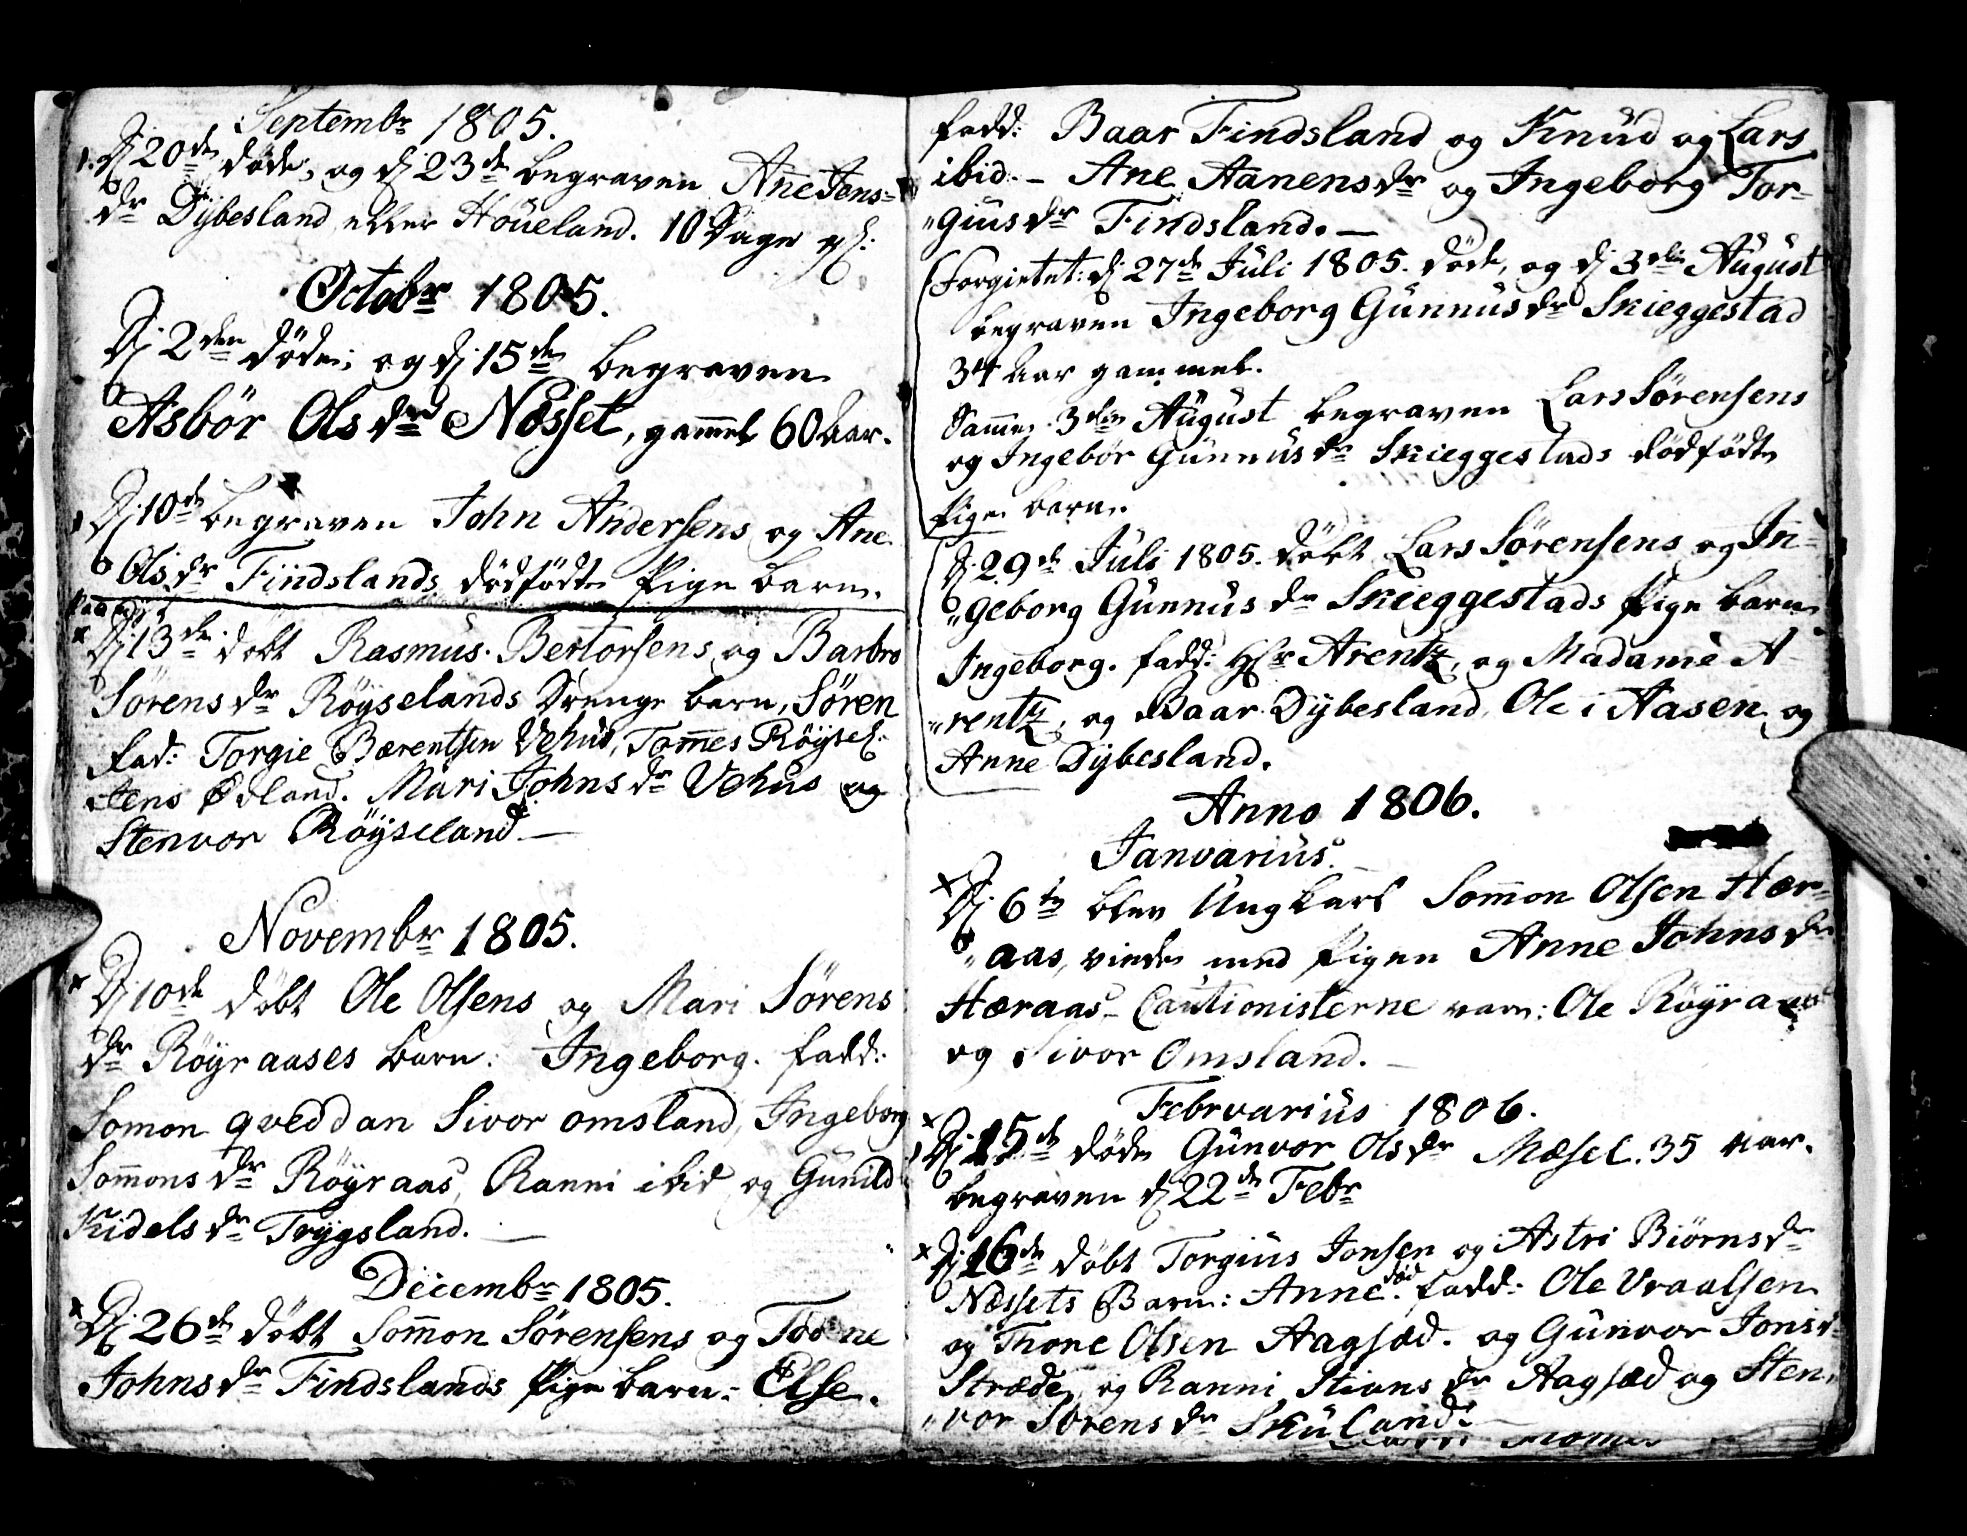 Septembr 1805.
Dj 20de döde, og dj 23de begraven Ane Jens=
dr Dÿbesland eller Höueland. 10 Dage gl:
Octobr 1805.
Dj 2den döde, og dj 15de begraven
Asbör Olsdr Næsset, gamel 60 Aar.
Dj 10de begraven John Andersens og Ane
Olsdr Findslands dödfödte Pige barn.
Dj 13de döbt Rasmus Bertorsens og Barbro
Sörensdr Röÿselands Drenge barn, Sören
Fad: Torgie Bærentsen Vehus, Tomes Röÿsel:
Jens Ödland. Mari Johnsdr Vehus og
Stenvor Röÿseland. —
Novembr 1805.
Dj 10de döbt Ole Olsens og Mari Sörens
dr Röÿraases barn: Ingeborg. fadd:
Somon qveddan Sivor omsland, Ingeborg
Somonsdr Röÿraas, Ranni ibid og Gunild
Kidelsdr Trÿgsland. —
Decembr 1805.
Dj 26de döbt Somon Sörensens og Tone
Johnsdr Findslands Pige barn: Else.
fadd: Baar Findsland og Knud og Lars
ibid. — Ane Aanensdr og Ingeborg Tor-
"giusdr Findsland. —
Forgietet: dj 27de Juli 1805. döde, og dj 3die August
begraven Ingeborg Gunnusdr Skieggestad
34 Aar gammel.
Samme 3die August begraven Lars Sörensens
og Ingebör Gunnusdr Skieggestads dödfödte
Pige barn.
Dj 29de Juli 1805. döbt Lars Sörensens og In=
"geborg Gunnusdr Skieggestads Pige barn
Ingeborg. fadd: Hr Arentz, og Madame A
"rentz, og Baar Dÿbesland, Ole i Aasen og
Anne Dÿbesland.
Anno 1806.
Janvarius.
Dj 6te blev Ungkarl Somon Olsen Hær=
"aas, viede med Pigen Anne Johnsdr
Hæraas — Cautionisterne vare: Ole Röÿraas
og Sivor Omsland. —
Febrvarius 1806.
Dj 15de döde Gunvor Olsdr Mæsel. 35 Aar.
begraven dj 22de Febr
Dj 16de döbt Torgius Jonsen og Astri Biörnsdr
Næssets Barn: Anne. död fadd: Ole Vraalsen
og Thore Olsen Aagsæd. og Gunvor Jonsd=
Stræde, og Ranni Stiansdr Aagsæd og Sten=
"vor Sörensdr Skuland: